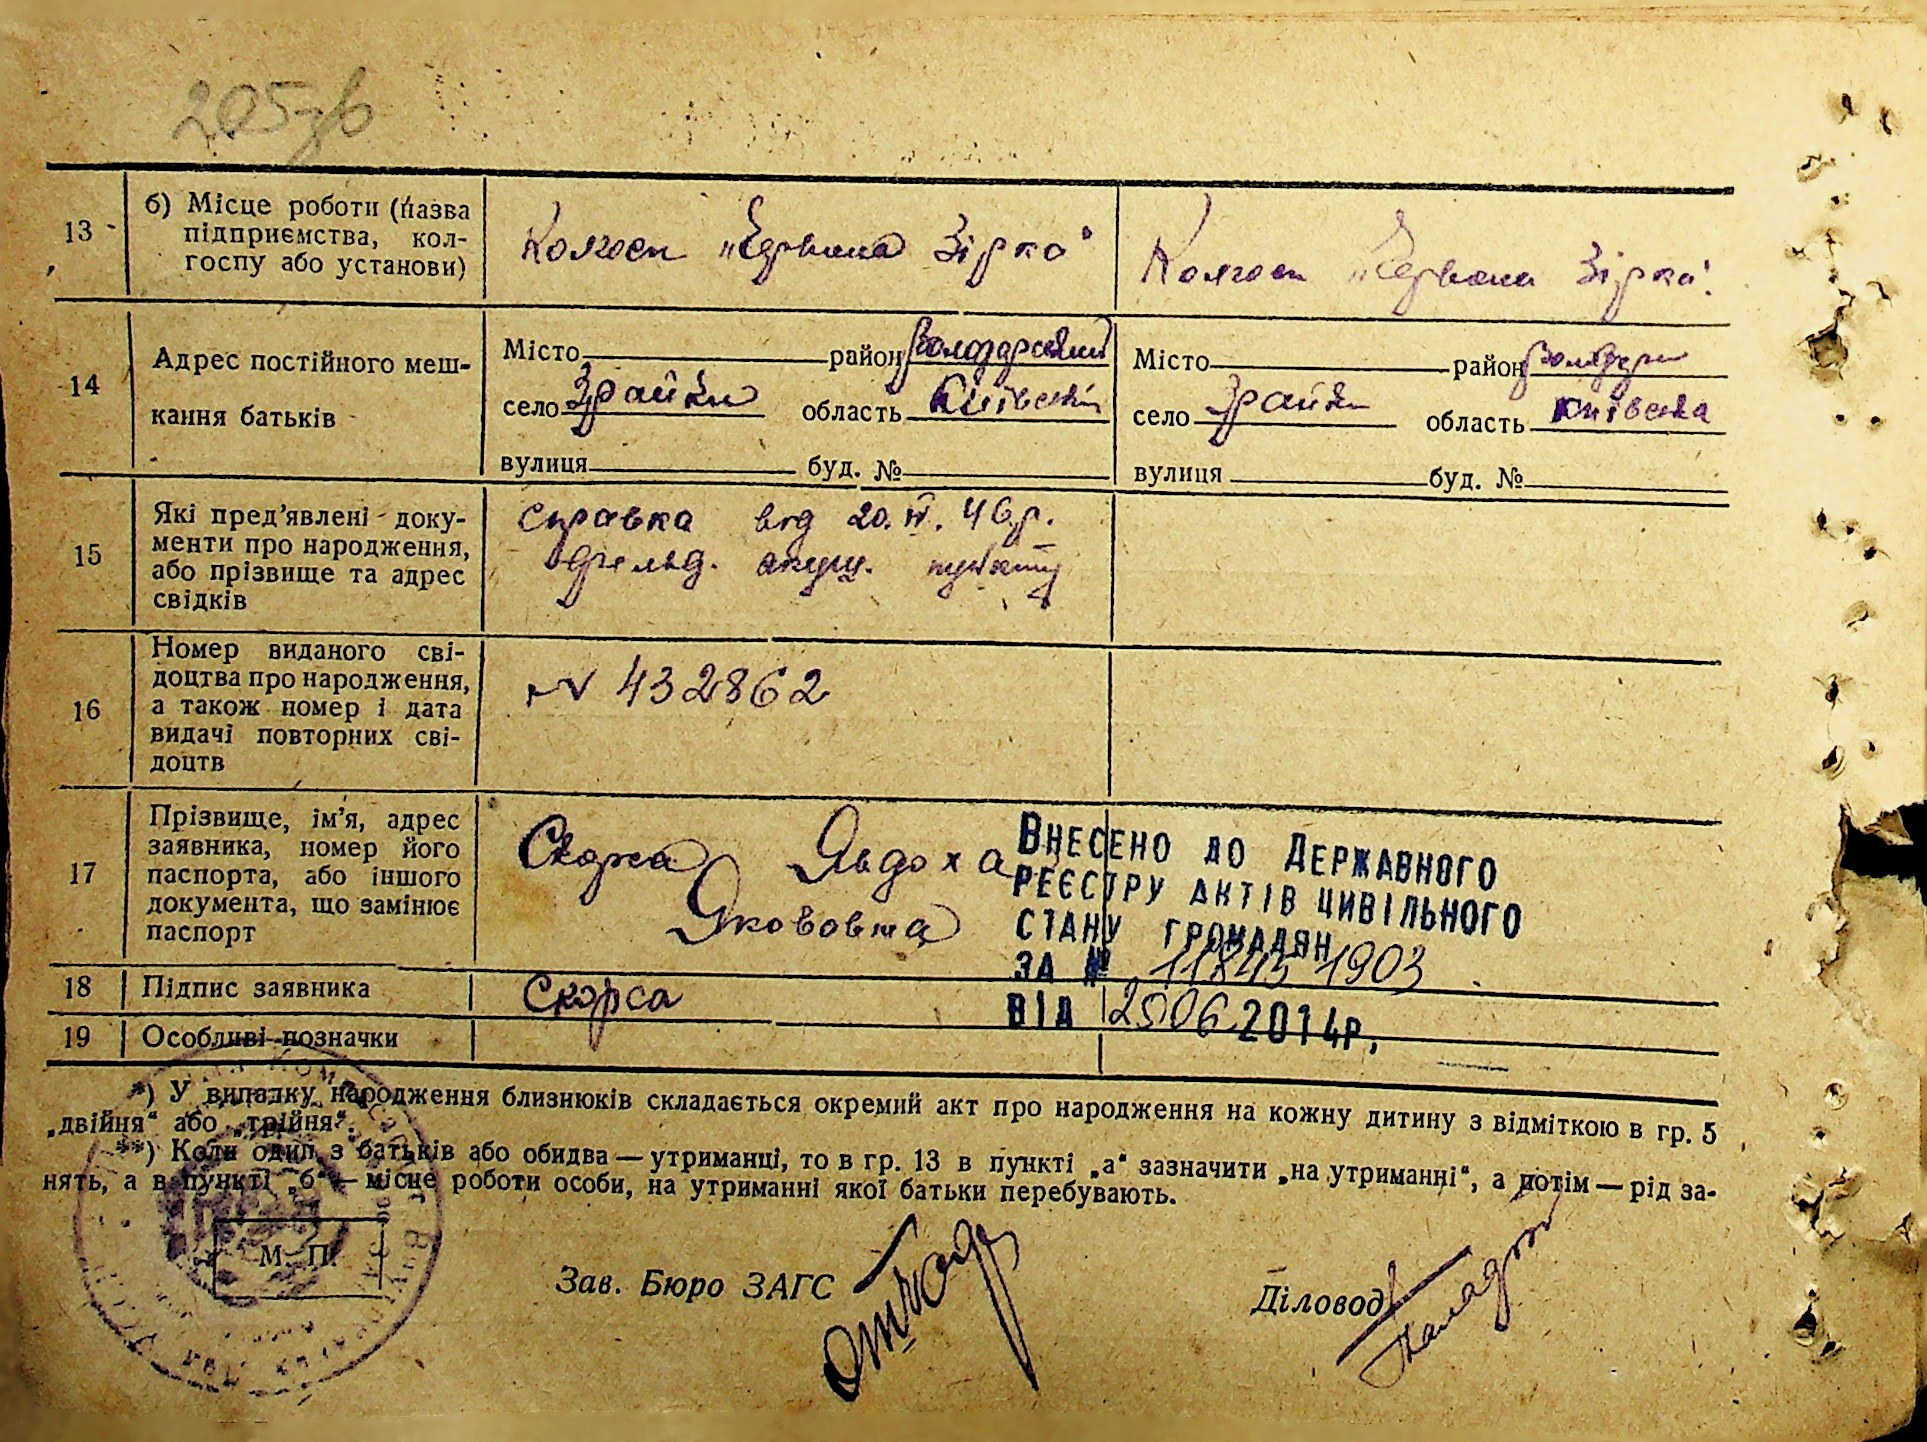 205зв
13
б) Місце роботи (назва
підприємства, кол-
госпу або установи)
Колгосп „Червона Зірка“
Колгосп „Червона Зірка“.
14
Адрес постійного меш-
кання батьків
Місто район Володарський
село Зрайки область Київській
вулиця буд. №
Місто район Володарк
село Зрайки область Київська
вулиця буд. №
15
Які пред’явлені доку-
менти про народження,
або прізвище та адрес
свідків
Справка від 20.IV.46р.
фельд. акуш. пункту
16
Номер виданого сві-
доцтва про народження,
а також номер і дата
видачі повторних сві-
доцтв
N 432862
17
Прізвище, ім’я, адрес
заявника, номер його
паспорта, або іншого
документа, що замінює
паспорт
Явдоха
Якововна
ВНЕСЕНО ДО ДЕРЖАВНОГО
РЕЄСТРУ АКТІВ ЦИВІЛЬНОГО
СТАНУ ГРОМАДЯН
ЗА № 11845 1903
ВІД 2506 2014р.
18 Підпис заявника
Скорса
19 Особливі позначки
*) У випадку народження близнюків складається окремий акт про народження на кожну дитину з відміткою в гр. 5
„двійня“ або „трійня“.
**) Коли один з батьків або обидва — утриманці, то в гр. 13 в пункті „а“ зазначити „на утриманні“, а потім — рід за-
нять, а в пункті „б“ — місце роботи особи, на утриманні якої батьки перебувають.
М. П.
Зав. Бюро ЗАГС
Діловод